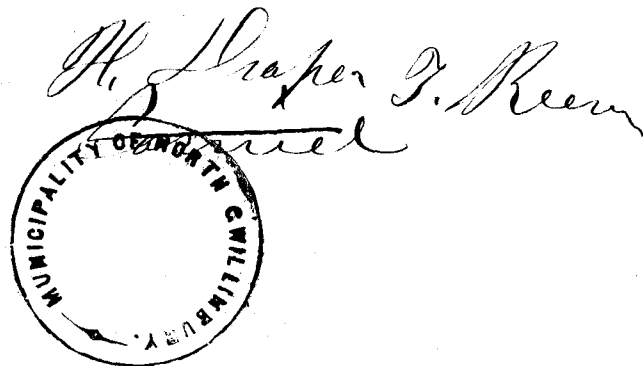 H. Draper T. Reeve
MUNICIPALITY OF NORTH GWILLIMBURY.